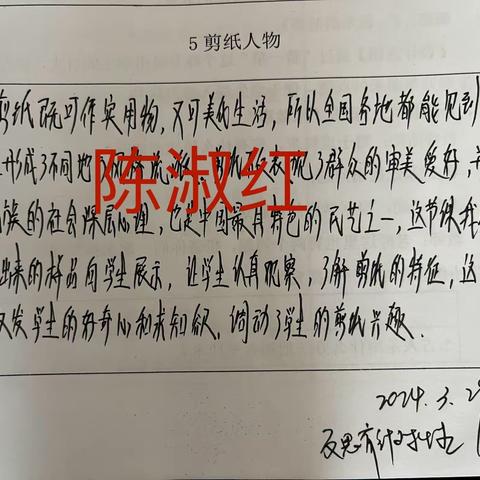 5 剪纸人物
剪纸既可作实用物，又可美化生活，所以全国各地都能见到
形成了不同地 流派，剪纸不 表现了群众的审美爱好，
族的社会深层心理，也是中国最具特色的民艺之一，这节课我
出来的样品向学生展示，让学生认真观察，了解剪纸的特征，这
发学生的好奇心和求知欲，调动了学生的剪纸兴趣．
陈淑红
2024．3．2
反思